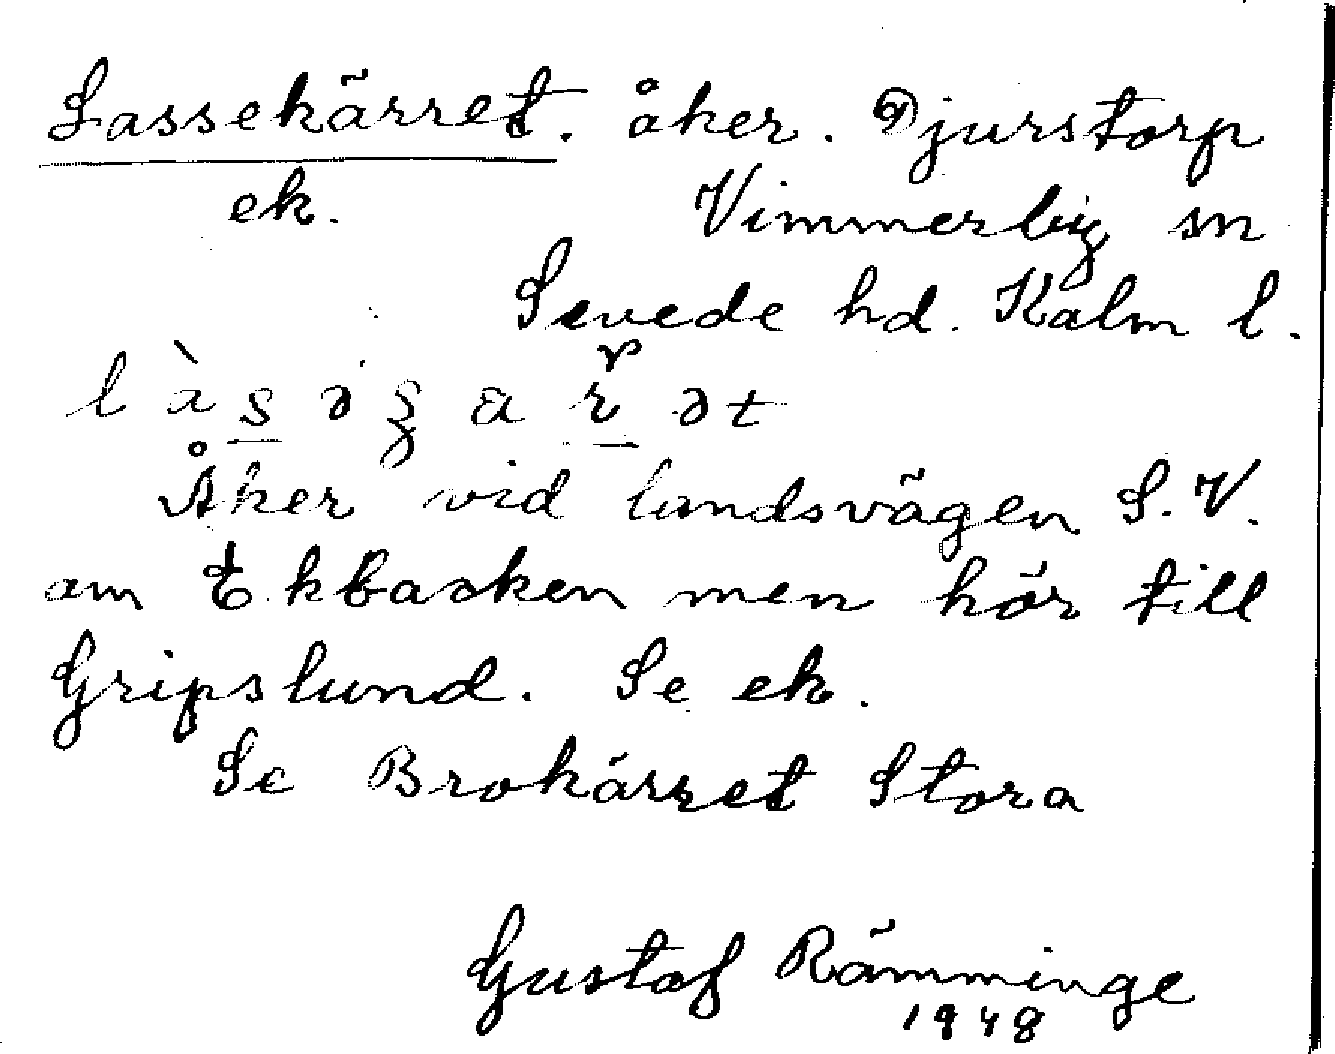 Lassekärret. åker. Djurstorp
ek. Vimmerby sn
Sevede hd. Kalm l.
Åker vid landsvägen S.V.
om Ekbacken men hör till
Gripslund. Se ek.
Se Brokärret Stora
Gustaf Rämminge
1948